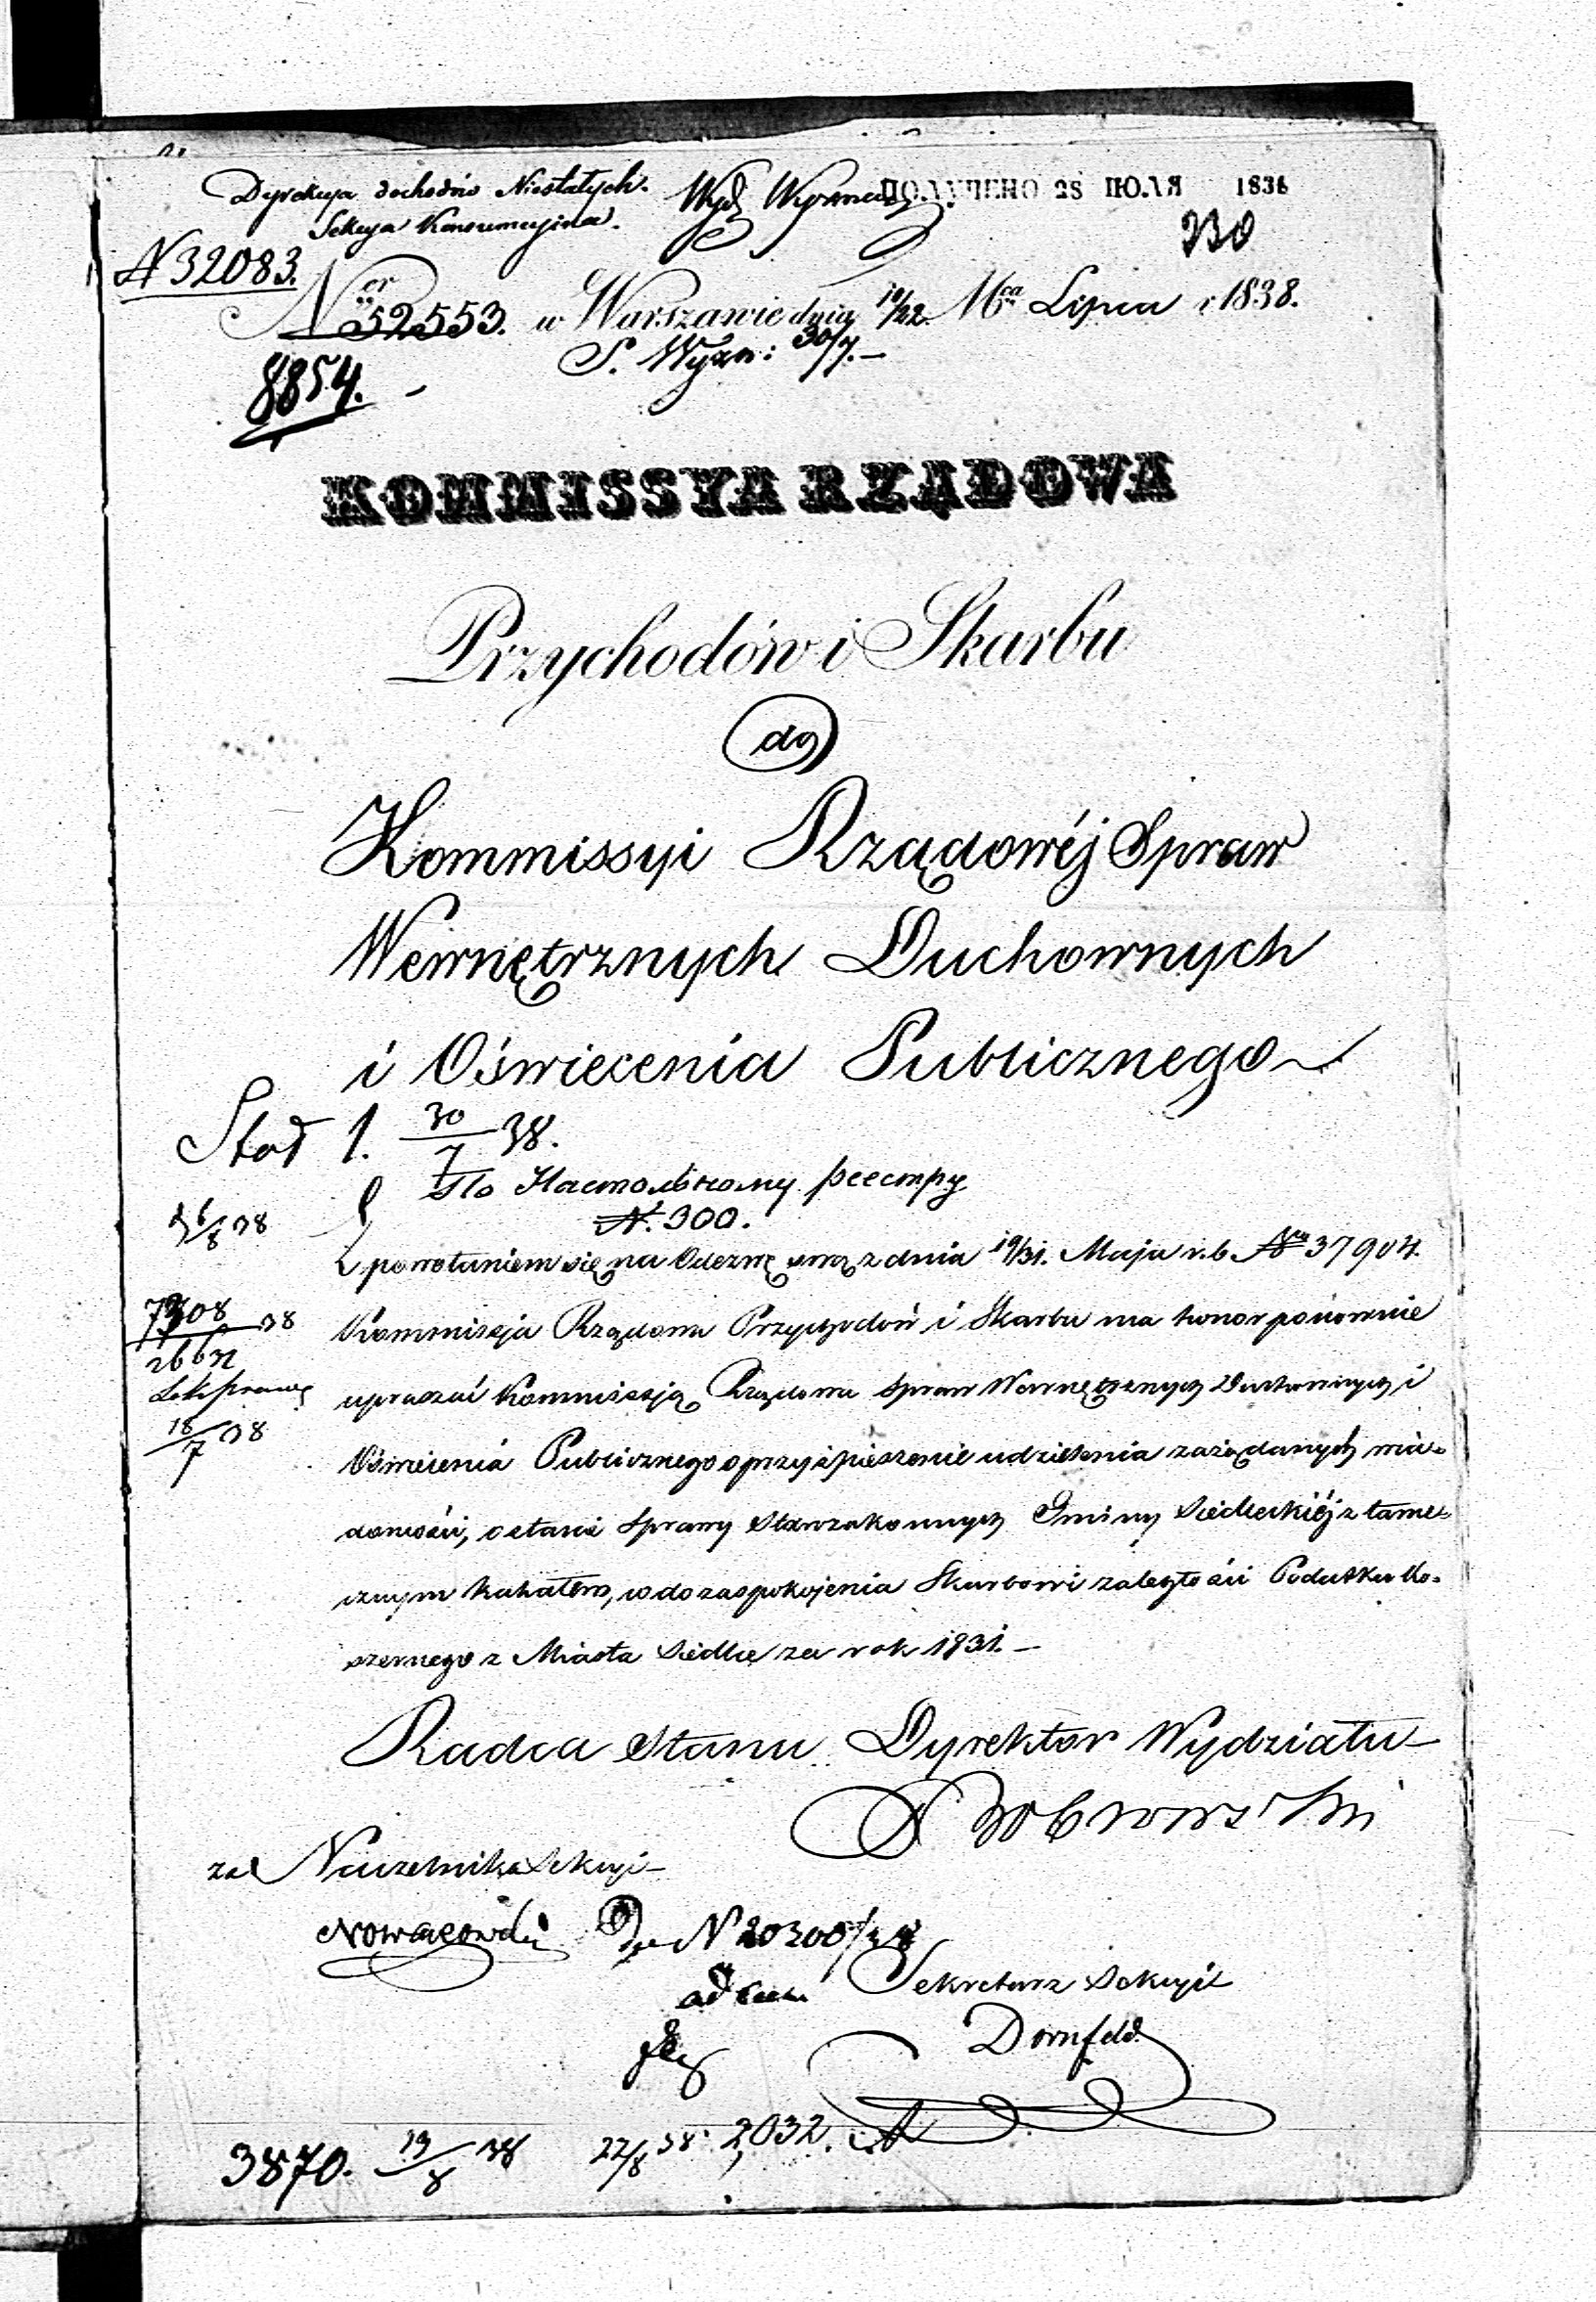 Dyrekcya dochodów Niestałych.
Sekcya Konsumcyjna.
Wydz Wyznań
ПОЛУЧЕНО 28 ІЮЛЯ 1838
230
N 32083.
Nor 52553. w Warszawie dnia 10/22 Mca Lipca r. 1838.
S. Wyzn: 30/7.—
8854.
KOMMISSYA RZĄDOWA
Przychodów i Skarbu
do
Kommissyi Rządowéj Spraw
Wewnętrznych Duchownych
i Oświecenia Publicznego
30/7 38.
По Настольному реестру
N. 300.
Z powołaniem się na Odezwę swą z dnia 19/31. Maja r. b. Nro 37904.
Kommissja Rządowa Przychodów i Skarbu ma honor ponownie
upraszać Kommissją Rządową Spraw Wewnętrznych Duchownych i
Oświecenia Publicznego o przyśpieszenie udzielenia zażądanych wia-
domości, o stanie sprawy Starozakonnych Gminy Siedleckiéj z tame-
cznym kahałem, co do zaspokojenia Skarbowi zaległości Podatku Ko-
szernego z Miasta Siedlec za rok 1831.—
Radca Stanu Dyrektor Wydziału
za Naczelnika Sekcyi
Nowakowski
N 20300/38
Sekretarz Sekcyi
Dornfeld
3870. 19/8 38 22/8 38. 2,032.